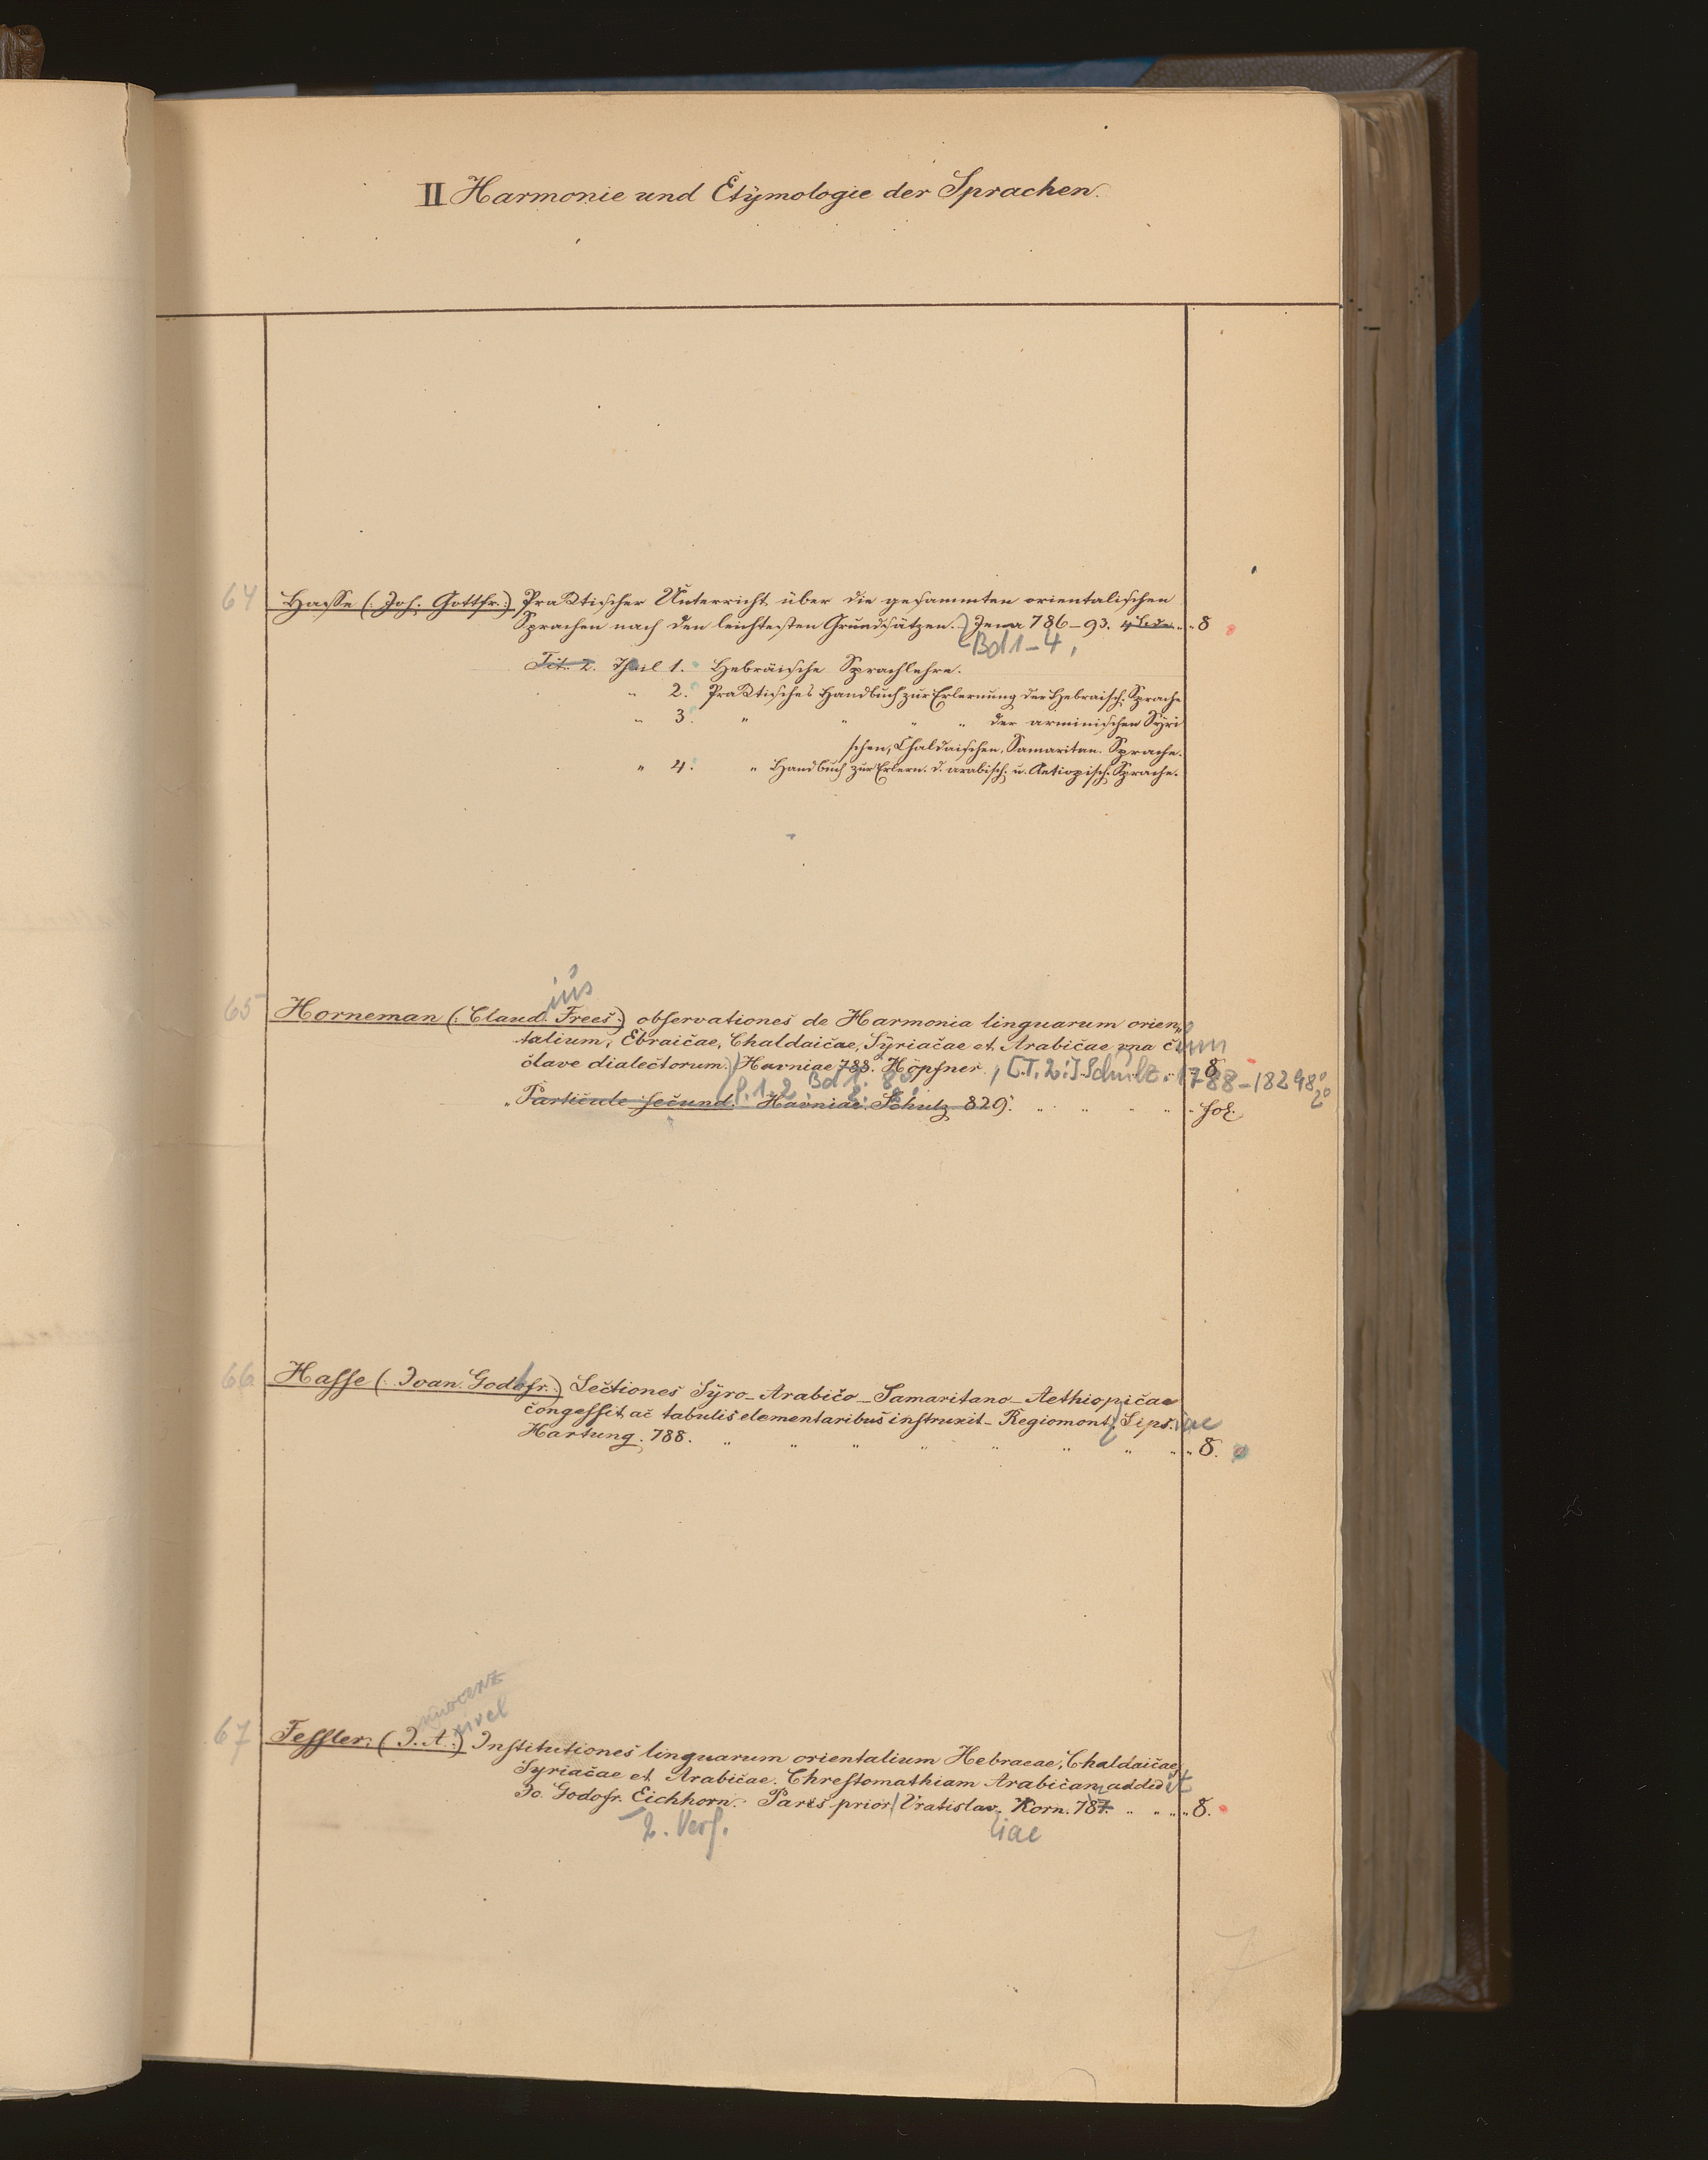 II Harmonie und Etymologie der Sprachen.
64 Hasse (: Joh. Gottfr. :) Praktischer Unterricht über die gesammten orientalischen
Sprachen nach den leichtesten Grundsätzen. Jena 786–93. 4 „ 8
Bd 1–4,
Tit. 2. Theil 1. Hebräische Sprachlehre.
„ 2. Praktisches Handbuch zur Erlernung der Hebraisch. Sprache
„ 3. „ „ „ „ der arminischen Syri
schen, Chaldaischen, Samaritan. Sprache.
„ 4. „ Handbuch zur Erlern. d. arabisch. u. Aetiopisch. Sprache.
ius
65 Horneman (: Claud. Frees :) observationes de Harmonia linguarum orien„
talium, Ebraicae, Chaldaicae, Syriacae et Arabicae una cum
clave dialectorum. Havniae 788. Höpfner, [T. 2:] Schulz. 1788–1829 8° 2°
P. 1. 2 Bd 1: 8°, 2:
„ Particule secund. Havniae. Schulz 829. „ „ „ „ „ fol.
66 Hasse (: Ioan. Godofr. :) Lectiones Syro–Arabico–Samaritano–Aethiopicae
congessit ac tabulis elementaribus instruxit– Regiomont, Lips. iae
Hartung. 788. „ „ „ „ „ „ „ „ „ 8.
Innocenz
67 Fessler: (I. A.:) Institutiones linguarum orientalium Hebraeae, Chaldaicae,
Syriacae et Arabicae. Chrestomathiam Arabicam addidit
Jo. Godofr. Eichhorn. Pars prior Vratislav. Korn. 787. „ „ „ „ 8.
2. Verf. liae
7